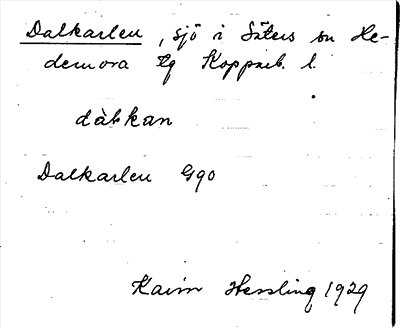 Dalkarlen, sjö i Säters sn He-
demora tg Kopparb. l.
dàłkan
Dalkarlen G90
Karin Hessling 1929